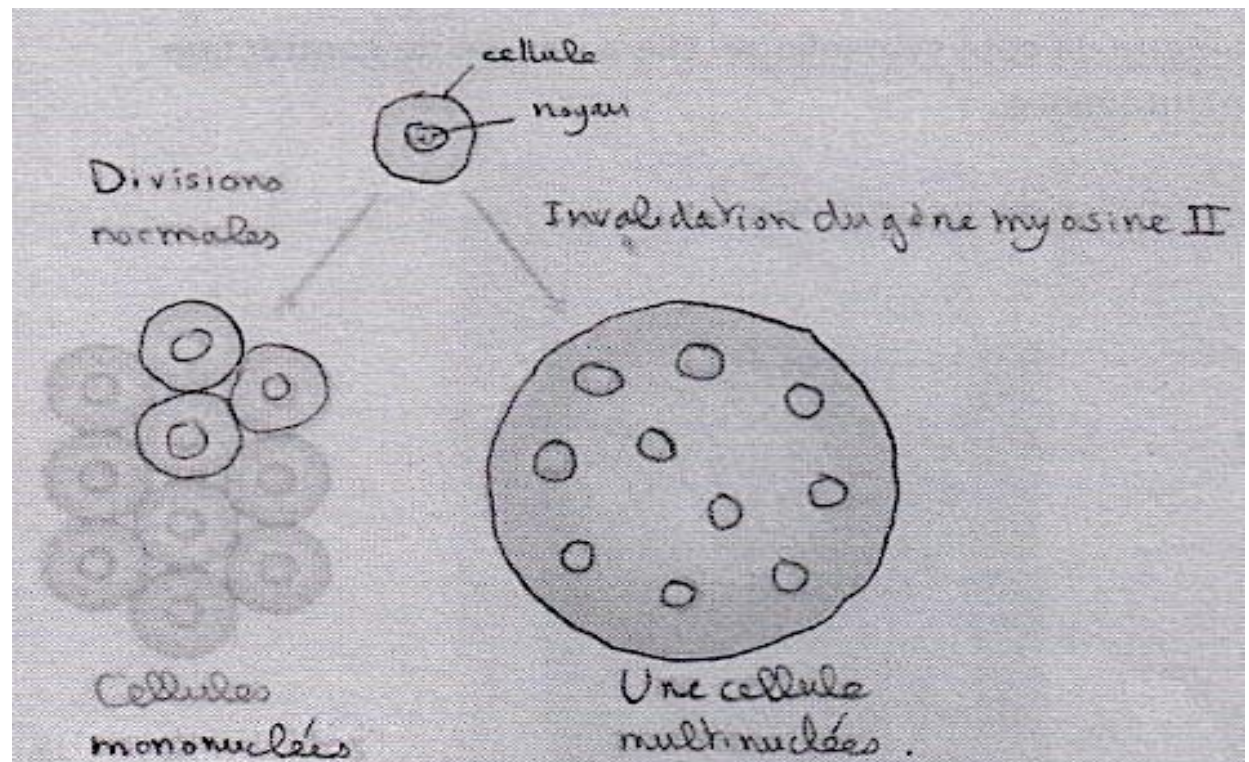 cellule
noyau
Divisions
normales
Invalidation du gène myosine II
Cellules
mononuclées
Une cellule
multinuclées.